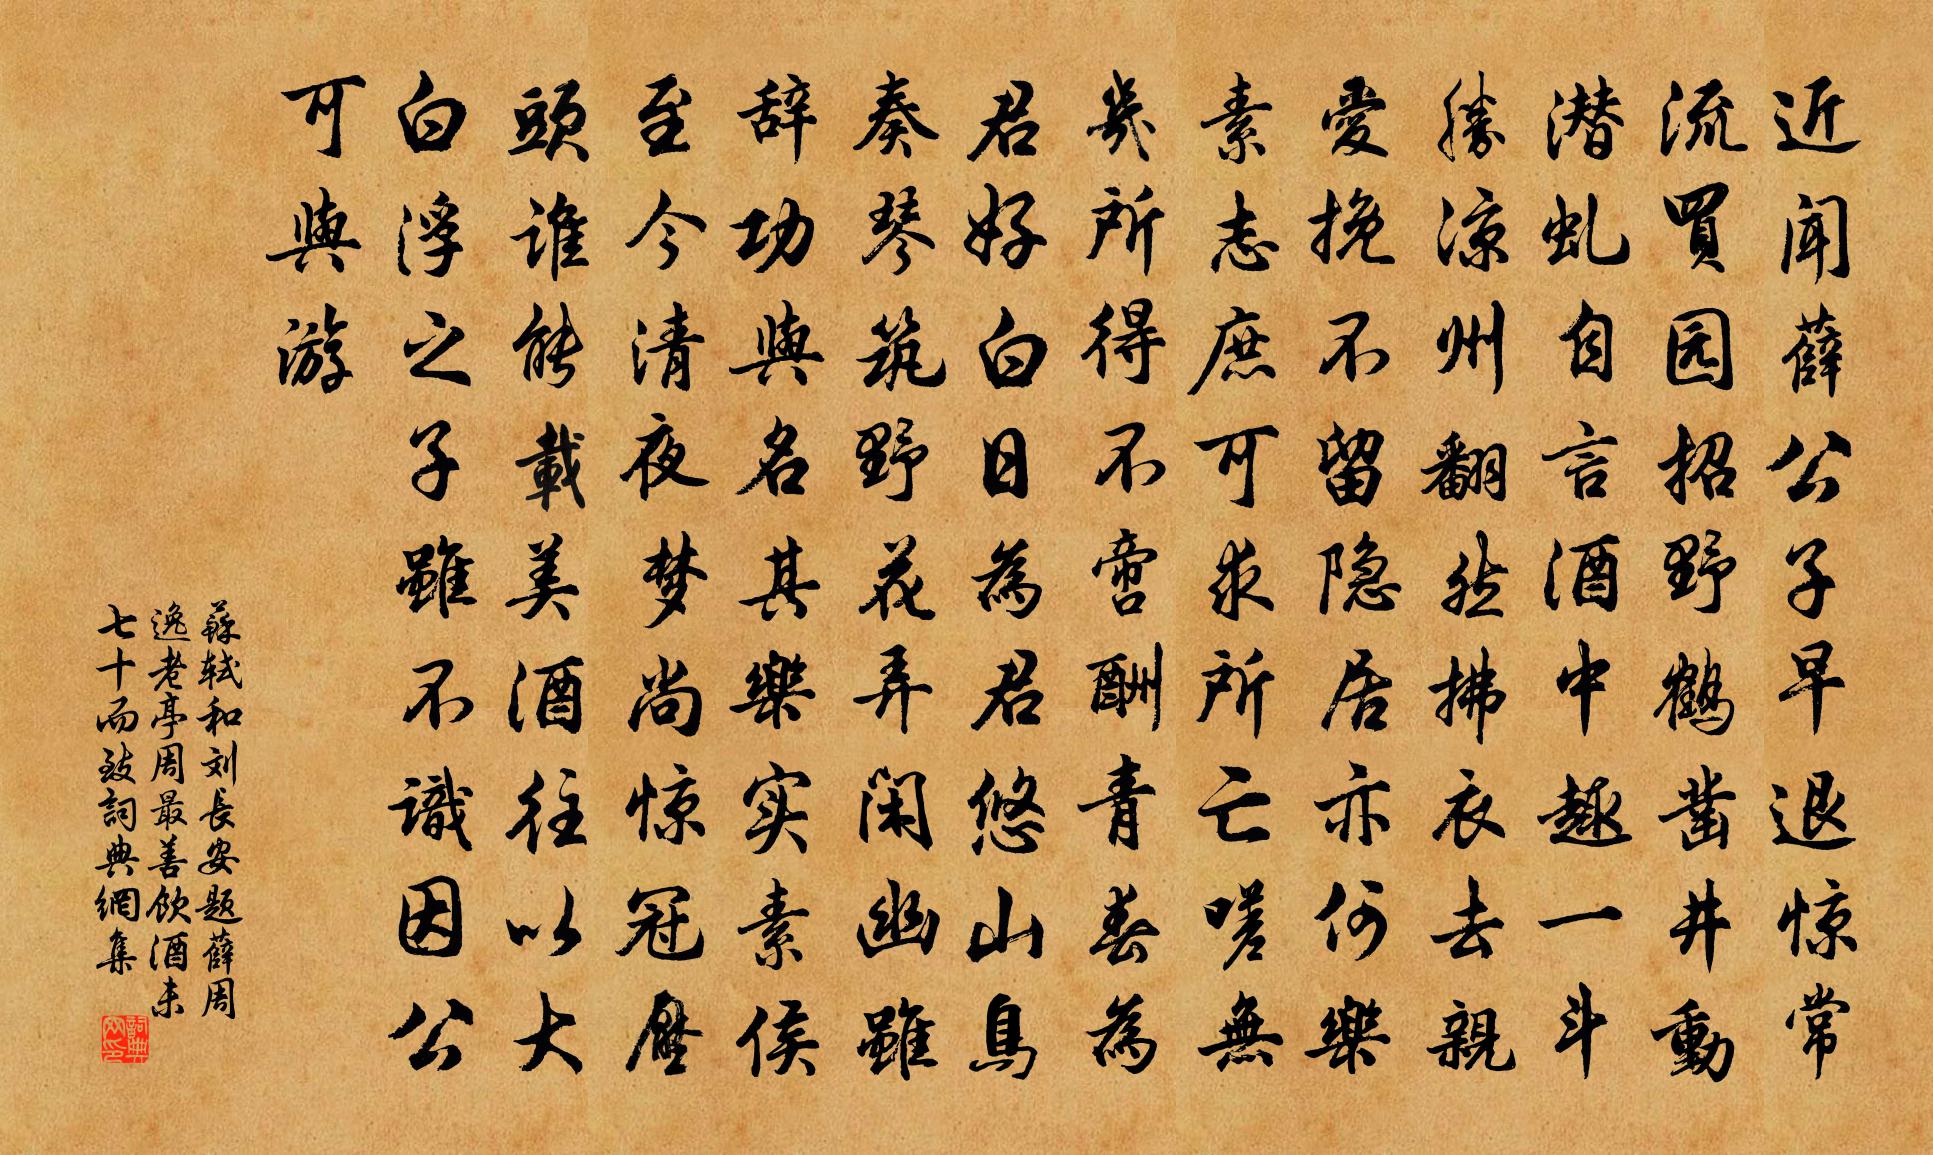 近闻薛公子早退惊常
流買园招野鹤凿井動
潜虬自言酒中趣一斗
勝凉州翻然拂衣去親
愛挽不留隐居亦何樂
素志庶可求所亡嗟無
幾所得不啻酬青春為
君好白日為君悠山鳥
奏琴筑野花弄闲幽雖
辞功與名其樂实素侯
至今清夜梦尚惊冠壓
頭谁能載美酒往以大
白浮之子雖不識因公
可與游
蘇轼和刘长安题薛周
逸老亭周最善飲酒未
七十而致詞典網集
詞典